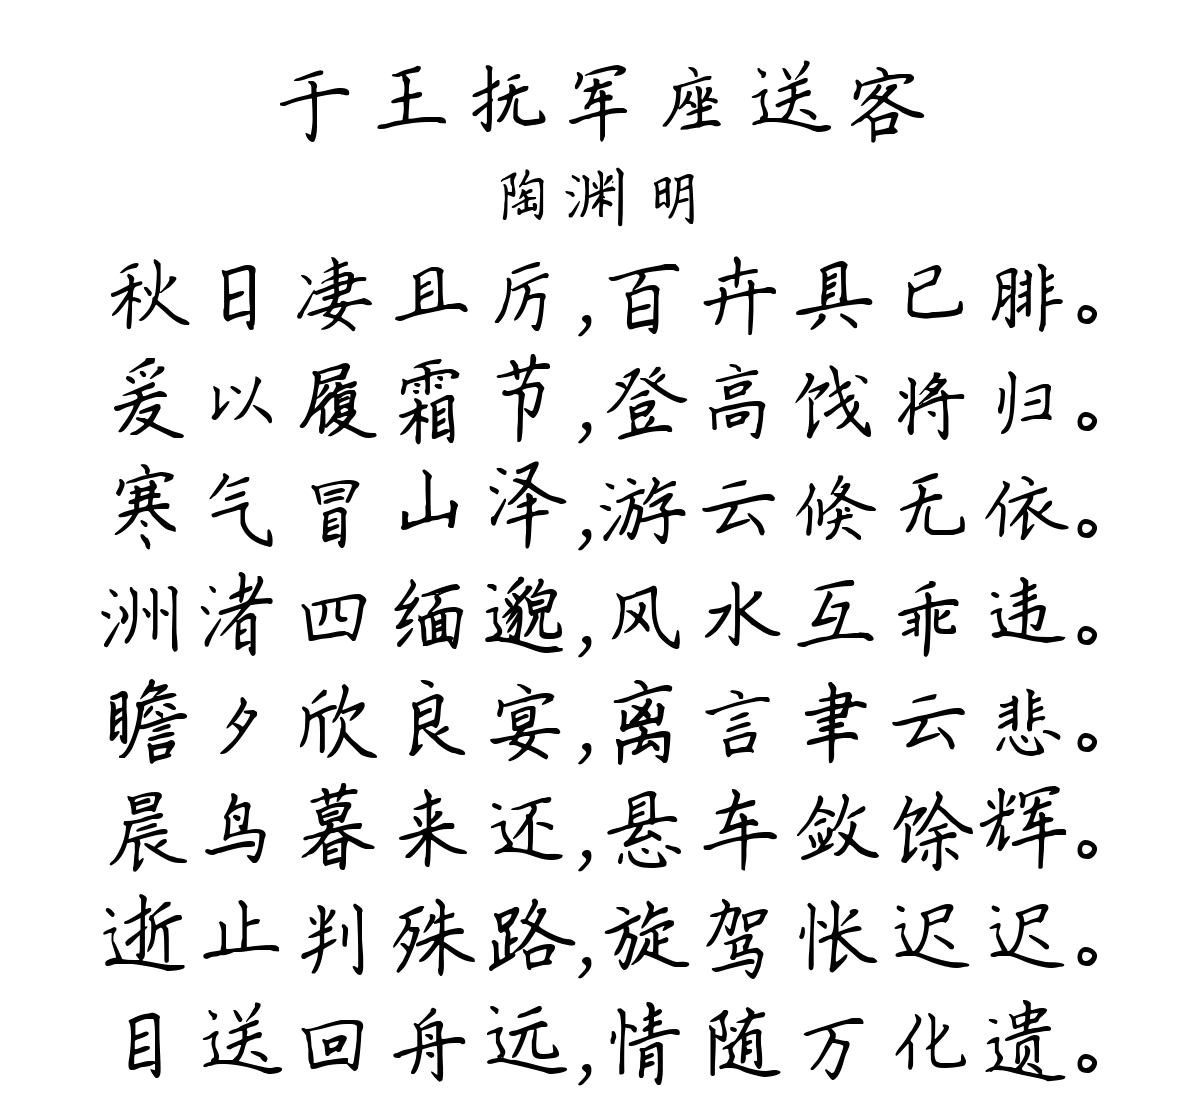 于王抚军座送客
陶渊明
秋日凄且厉,百卉具已腓。
爰以履霜节,登高饯将归。
寒气冒山泽,游云倏无依。
洲渚四缅邈,风水互乖违。
瞻夕欣良宴,离言聿云悲。
晨鸟暮来还,悬车敛馀辉。
逝止判殊路,旋驾怅迟迟。
目送回舟远,情随万化遗。